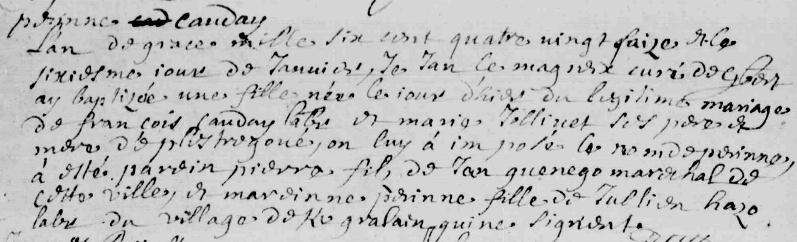 perinne cauday
Lan de grace mille six cent quatre vingt saize et le
sixiesme iour de Janvier Je Jan le magnex curé de
ay baptisée une fille née le iour d'hier du legitime mariage
de françois cauday labr et marie Jllivet ses pere et
mere de plistregouey on luy á imposé le nom de perinne
á esté parein pierre fils de Jan quenego mareshal de
cette ville et mareinne perinne fille de Jullien hazo
labr du village de Ke gralain qui ne signent